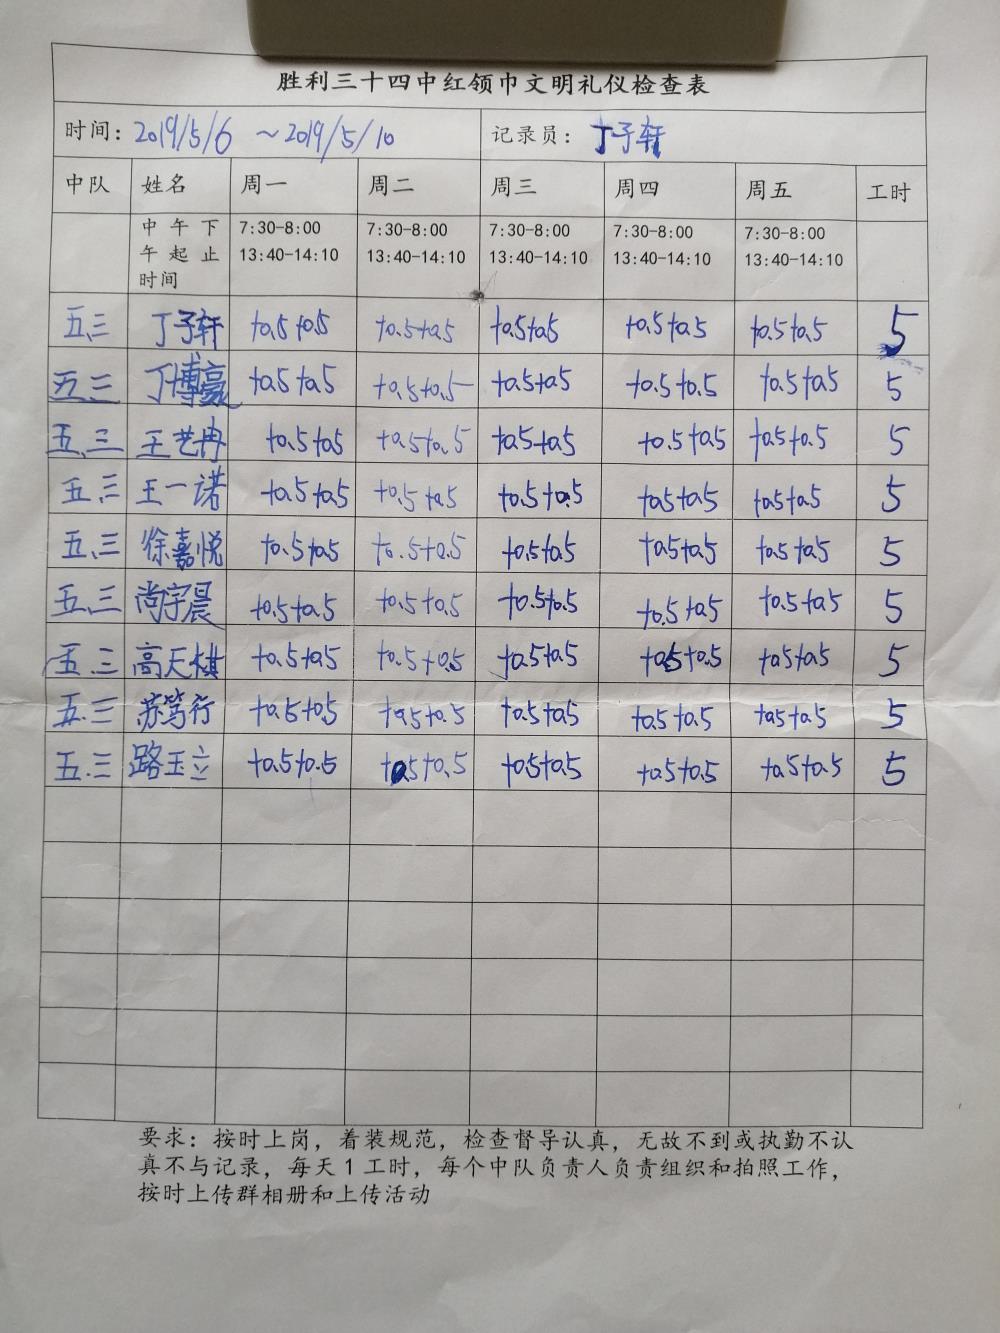 胜利三十四中红领巾文明礼仪检查表
时间：2019/5/6 ～2019/5/10 记录员：丁子轩
中队 姓名 周一 周二 周三 周四 周五 工时
中午下午起止时间 7:30-8:00 13:40-14:10 7:30-8:00 13:40-14:10 7:30-8:00 13:40-14:10 7:30-8:00 13:40-14:10 7:30-8:00 13:40-14:10
五.三 丁子轩 +0.5+0.5 +0.5+0.5 +0.5+0.5 +0.5+0.5 +0.5+0.5 5
五.三 丁博豪 +0.5+0.5 +0.5+0.5 +0.5+0.5 +0.5+0.5 +0.5+0.5 5
五.三 王艺冉 +0.5+0.5 +0.5+0.5 +0.5+0.5 +0.5+0.5 +0.5+0.5 5
五.三 王一诺 +0.5+0.5 +0.5+0.5 +0.5+0.5 +0.5+0.5 +0.5+0.5 5
五.三 徐嘉悦 +0.5+0.5 +0.5+0.5 +0.5+0.5 +0.5+0.5 +0.5+0.5 5
五.三 尚宇晨 +0.5+0.5 +0.5+0.5 +0.5+0.5 +0.5+0.5 +0.5+0.5 5
五.三 高天棋 +0.5+0.5 +0.5+0.5 +0.5+0.5 +0.5+0.5 +0.5+0.5 5
五.三 苏笃行 +0.5+0.5 +0.5+0.5 +0.5+0.5 +0.5+0.5 +0.5+0.5 5
五.三 路玉立 +0.5+0.5 +0.5+0.5 +0.5+0.5 +0.5+0.5 +0.5+0.5 5
要求：按时上岗，着装规范，检查督导认真，无故不到或执勤不认
真不与记录，每天1工时，每个中队负责人负责组织和拍照工作，
按时上传群相册和上传活动